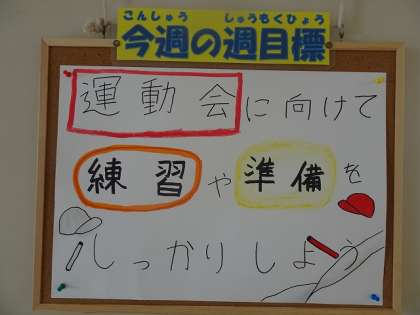 こんしゅう しゅうもくひょう
今週の週目標
運動会に向けて
練習や準備を
しっかりしよう